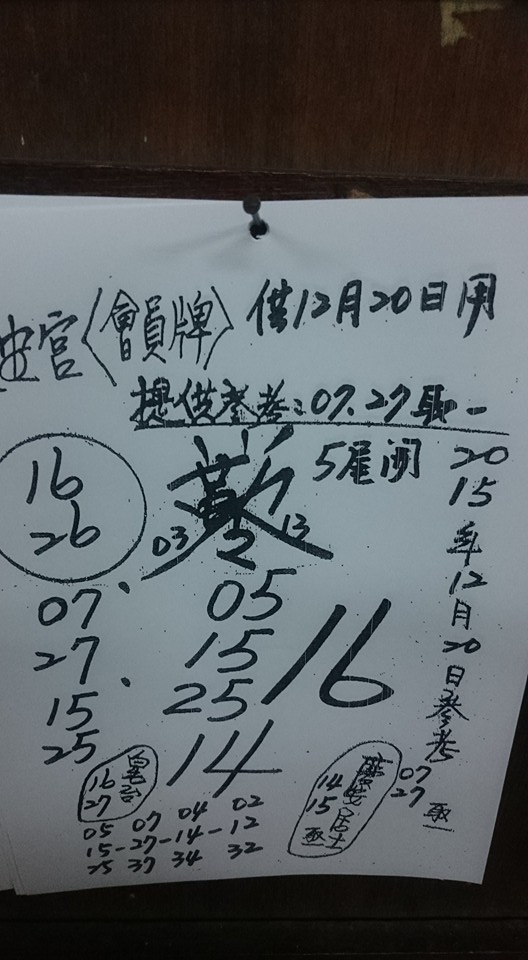 宮〈會員牌〉供12月20日用
提供參考:07.27取一
5尾開
16
26
03
13
07
27
15
25
05
15
25
16
14
2015年12月20日參考
07
27
取
16
27
居士
14
15
取
05 07 04 02
15-27-14-12
25 37 34 32